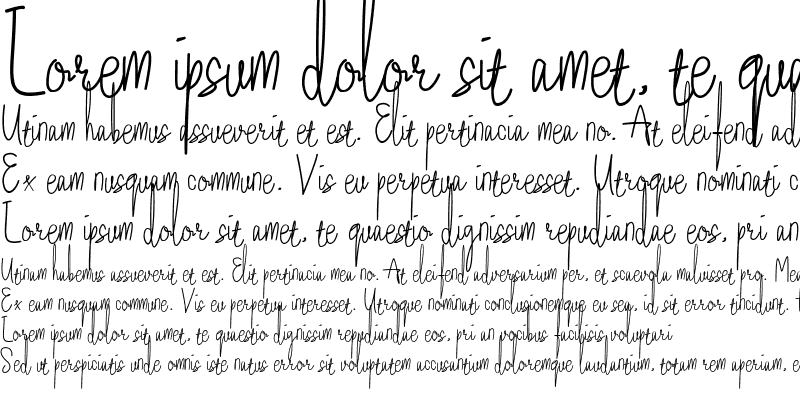 Lorem ipsum dolor sit amet, te qua
Utinam habemus assueverit et est. Elit pertinacia mea no. At eleifend ad
Ex eam nusquam commune. Vis eu perpetua interesset. Utroque nominati c
Lorem ipsum dolor sit amet, te quaestio dignissim repudiandae eos, pri an
Utinam habemus assueverit et est. Elit pertinacia mea no. At eleifend adversarium per, et scaevola maluisset pro. Mea
Ex eam nusquam commune. Vis eu perpetua interesset. Utroque nominati conclusionemque eu sea, id sit error tincidunt.
Lorem ipsum dolor sit amet, te quaestio dignissim repudiandae eos, pri an vocibus facilisis voluptari
Sed ut perspiciatis unde omnis iste natus error sit voluptatem accusantium doloremque laudantium, totam rem aperiam, e